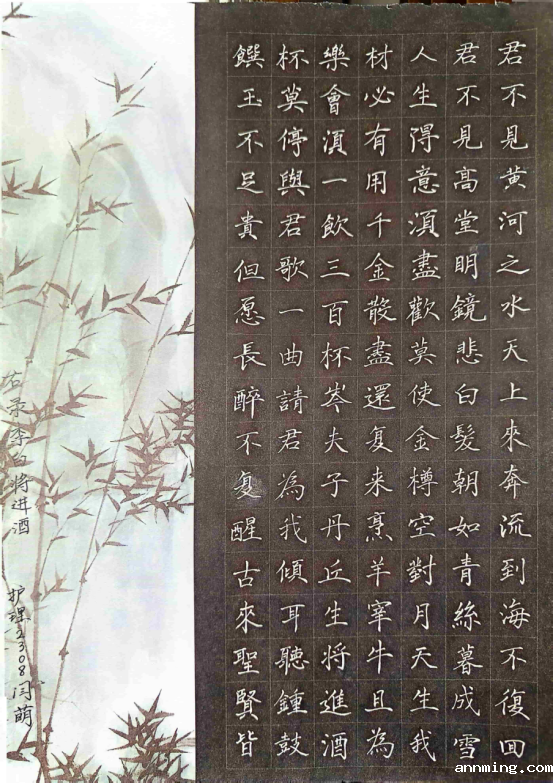 君不見黃河之水天上來奔流到海不復回
君不見高堂明鏡悲白髮朝如青絲暮成雪
人生得意須盡歡莫使金樽空對月天生我
材必有用千金散盡還复来烹羊宰牛且為
樂會須一飲三百杯岑夫子丹丘生將進酒
杯莫停與君歌一曲請君為我傾耳聽鍾鼓
饌玉不足貴但愿長醉不复醒古來聖賢皆
右录李白将进酒
护理2308闫萌
annming.com